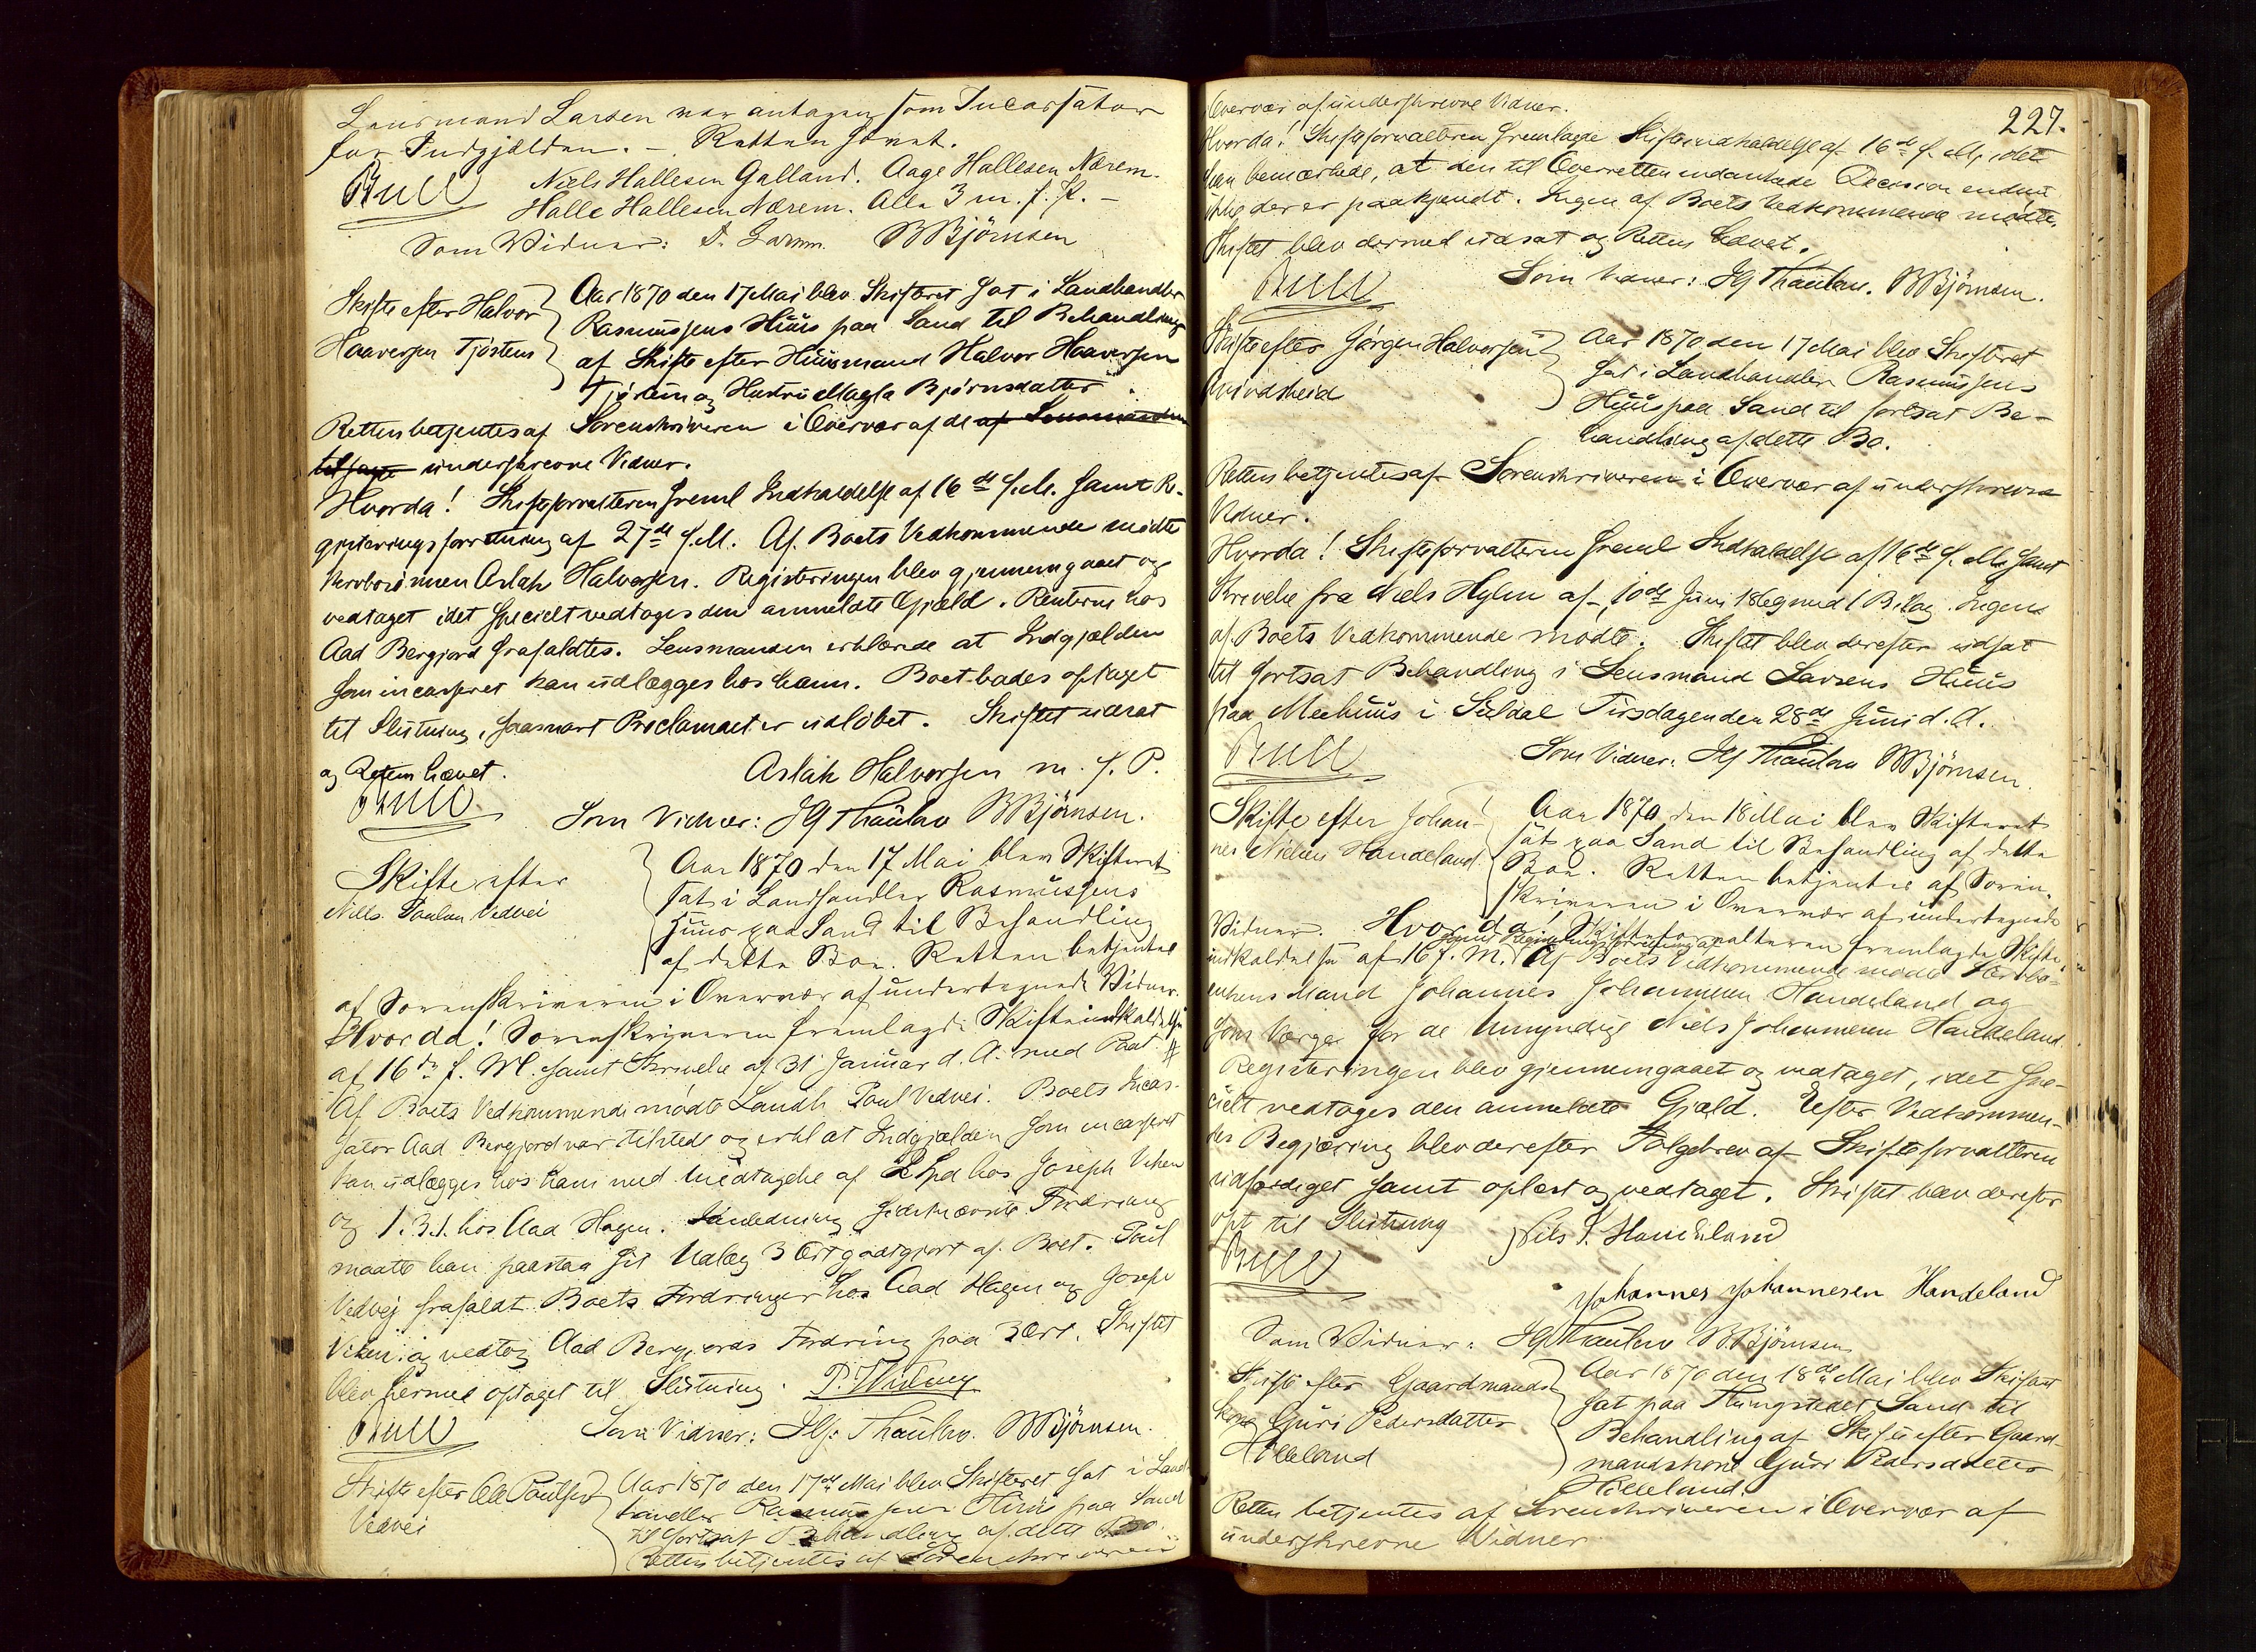 Lensmand Larsen var antagen som Incassator
for Indgjælden. – Retten hævet.
Bull
Niels Hallesen Galland. Aage Hallesen Nærem.
Halle Hallesen Nærem. Alle 3 m. f. P. –
Som Vidner: BBjörnsen
Skifte efter Halvor
Haaversen Tjöstens
Aar 1870 den 17 Mai blev Skifteret sat i Landhandler
Rasmussens Huus paa Sand til Behandling
af Skifte efter Huusmand Halvor Haaversen
og Hustru Magla Bjørnsdatter
Retten betjentes af Sorenskriveren i Overvær af de af Lensmanden
tilsagte underskrevne Vidner.
Hvorda! Skifteforvalteren freml Indkaldelse af 16de f.M. samt Re-
gisteringsforretning af 27de f.M. Af Boets Vedkommende mødte
Aslak Halvorsen. Registeringen blev gjennemgaaet og
vedtaget idet specielt vedtoges den anmeldte Gjæld. Renterne hos
Aad Bergjord frafaldtes. Lensmanden erklærede at Indgjælden
som incasseret kan udlægges hos ham. Boet bades optaget
til Slutning, saasnart Proclamaet er udløbet. Skiftet
og Retten hævet.
Aslak Halvorsen m. f. P.
Bull
Som Vidner: JGThaulow BBjörnsen.
Skifte efter
Niels Paulsen Vedvei
Aar 1870 den 17 Mai blev Skifteret
sat i Landhandler Rasmussens
Huus paa Sand til Behandling
af dette Boe. Retten betjentes
af Sorenskriveren i Overvær af undertegnede Vidner.
Hvorda! Sorenskriveren fremlagde Skifteindkaldelse
af 16de f. M. samt Skrivelse af 31 Januar d. A. med Paat.
Af Boets Vedkommende mødte Landh. Poul Vedvei. Boets Incas-
sator Aad Bergjord var tilstede og erkl at Indgjælden som incasseret
kan udlægges hos ham med Undtagelse af 2 Spd hos Joseph Viken
og 1. 3. 1. hos Aad Hagen. I Anledning sidstnævnte Fordring
maatte han paastaa sit Udlæg 3 Ort godtgjort af Boet. Poul
Vedvej frafaldt Boets Fordringer hos Aad Hagen og Joseph
Viken, og vedtog Aad Bergjords Fordring paa 3 Ort. Skiftet
blev hermed optaget til Slutning.
Bull
Som Vidner: JG Thaulow. BBjörnsen.
Skifte efter Ole Poulsen
Vedvei
Aar 1870 den 17de Mai blev Skifteret sat i Land
handler Rasmussens Huus paa Sand
til fortsat Behandling af dette Bo.
Retten betjentes af Sorenskriveren
227.
Overvær af underskrevne Vidner.
Hvorda! Skifteforvalteren fremlagde Skifteindkaldelse af 16de f. M., idet
han bemærkede, at den til Overretten indankede Decision endnu
ikke der er paakjendt. Ingen af Boets Vedkommende mødte.
Skiftet blev dermed udsat og Retten hævet.
Bull
Som Vidner: JG Thaulow. BBjörnsen.
Skifte efter Jørgen Halvorsen
Kvindsheid
Aar 1870 den 17 Mai blev Skifteret
sat i Landhandler Rasmussens
Huus paa Sand til fortsat Be-
handling af dette Bo.
Retten betjentes af Sorenskriveren i Overvær af underskrevne
Vidner.
Hvorda! Skifteforvalteren freml Indkaldelse af 16de f. M. samt
Skrivelse fra Niels Hylen af 10de Juni 1869 med 1 Bilag. Ingen
af Boets Vedkommende mødte. Skiftet blev derefter udsat
til fortsat Behandling i Lensmand Larsens Huus
paa Meehuus i Suldal Tirsdagen den 28de Juni d. A.
Bull
Som Vidner: JG Thaulow BBjörnsen.
Skifte efter Johan-
nes Nielsen Handeland.
Aar 1870 den 18 Mai blev Skifteret
sat paa Sand til Behandling af dette
Boe. Retten betjentes af Soren-
skriveren i Overvær af undertegnede
Vidner. Hvorda! Skifteforvalteren fremlagde Skifte-
samt Registeringsforretning af
indkaldelse af 16 f. M. Af Boets Vedkommende mødte
Mand Johannes Johannesen Handeland og
som Værge for de Umyndige Niels Johannesen Handeland.
Registeringen blev gjennemgaaet og vedtaget, idet spe-
cielt vedtoges den anmeldte Gjæld. Efter Vedkommen-
des Begjæring blev derefter Følgebrev af Skifteforvalteren
udfærdiget samt oplæst og vedtaget. Skiftet blev derefter
opt til Slutning
Nils J. Handeland
Bull
Johannes Johannesen Handeland
Som Vidner: JGThaulow BBjörnsen
Skifte efter Gaardmands-
kone Guri Pedersdatter
Hilleland
Aar 1870 den 18de Mai blev Skifteret
sat paa Thingstedet Sand til
Behandling af Skifte efter Gaard-
mandskone Guri Pedersdatter
Hilleland.
Retten betjentes af Sorenskriveren i Overvær af
underskrevne Vidner